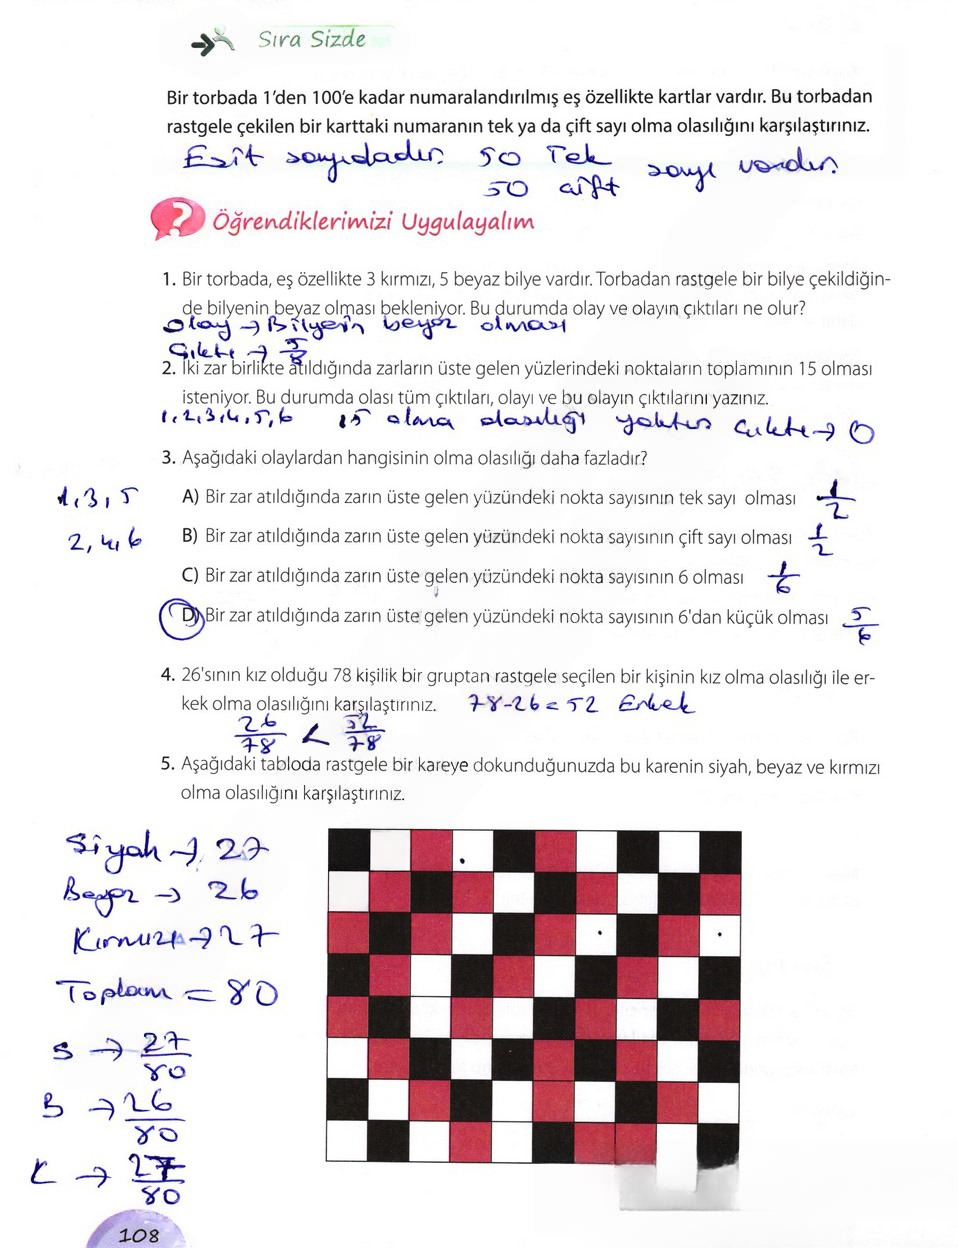 Sıra Sizde
Bir torbada 1'den 100'e kadar numaralandırılmış eş özellikte kartlar vardır. Bu torbadan
rastgele çekilen bir karttaki numaranın tek ya da çift sayı olma olasılığını karşılaştırınız.
Eşit sayıdadır. 50 Tek
50 çift sayı vardır.
Öğrendiklerimizi Uygulayalım
1. Bir torbada, eş özellikte 3 kırmızı, 5 beyaz bilye vardır. Torbadan rastgele bir bilye çekildiğin-
de bilyenin beyaz olması bekleniyor. Bu durumda olay ve olayın çıktıları ne olur?
Olay → Bilyenin beyaz olması
Çıktı → 5/8
2. İki zar birlikte atıldığında zarların üste gelen yüzlerindeki noktaların toplamının 15 olması
isteniyor. Bu durumda olası tüm çıktıları, olayı ve bu olayın çıktılarını yazınız.
1,2,3,4,5,6 15 olma olasılığı yoktur Çıktı → 0
3. Aşağıdaki olaylardan hangisinin olma olasılığı daha fazladır?
1,3,5 A) Bir zar atıldığında zarın üste gelen yüzündeki nokta sayısının tek sayı olması 1/2
2,4,6 B) Bir zar atıldığında zarın üste gelen yüzündeki nokta sayısının çift sayı olması 1/2
C) Bir zar atıldığında zarın üste gelen yüzündeki nokta sayısının 6 olması 1/6
D) Bir zar atıldığında zarın üste gelen yüzündeki nokta sayısının 6'dan küçük olması 5/6
4. 26'sının kız olduğu 78 kişilik bir gruptan rastgele seçilen bir kişinin kız olma olasılığı ile er-
kek olma olasılığını karşılaştırınız. 78-26=52 Erkek
26/78 < 52/78
5. Aşağıdaki tabloda rastgele bir kareye dokunduğunuzda bu karenin siyah, beyaz ve kırmızı
olma olasılığını karşılaştırınız.
Siyah → 27
Beyaz → 26
Kırmızı → 27
Toplam = 80
S → 27/80
B → 26/80
K → 27/80
108